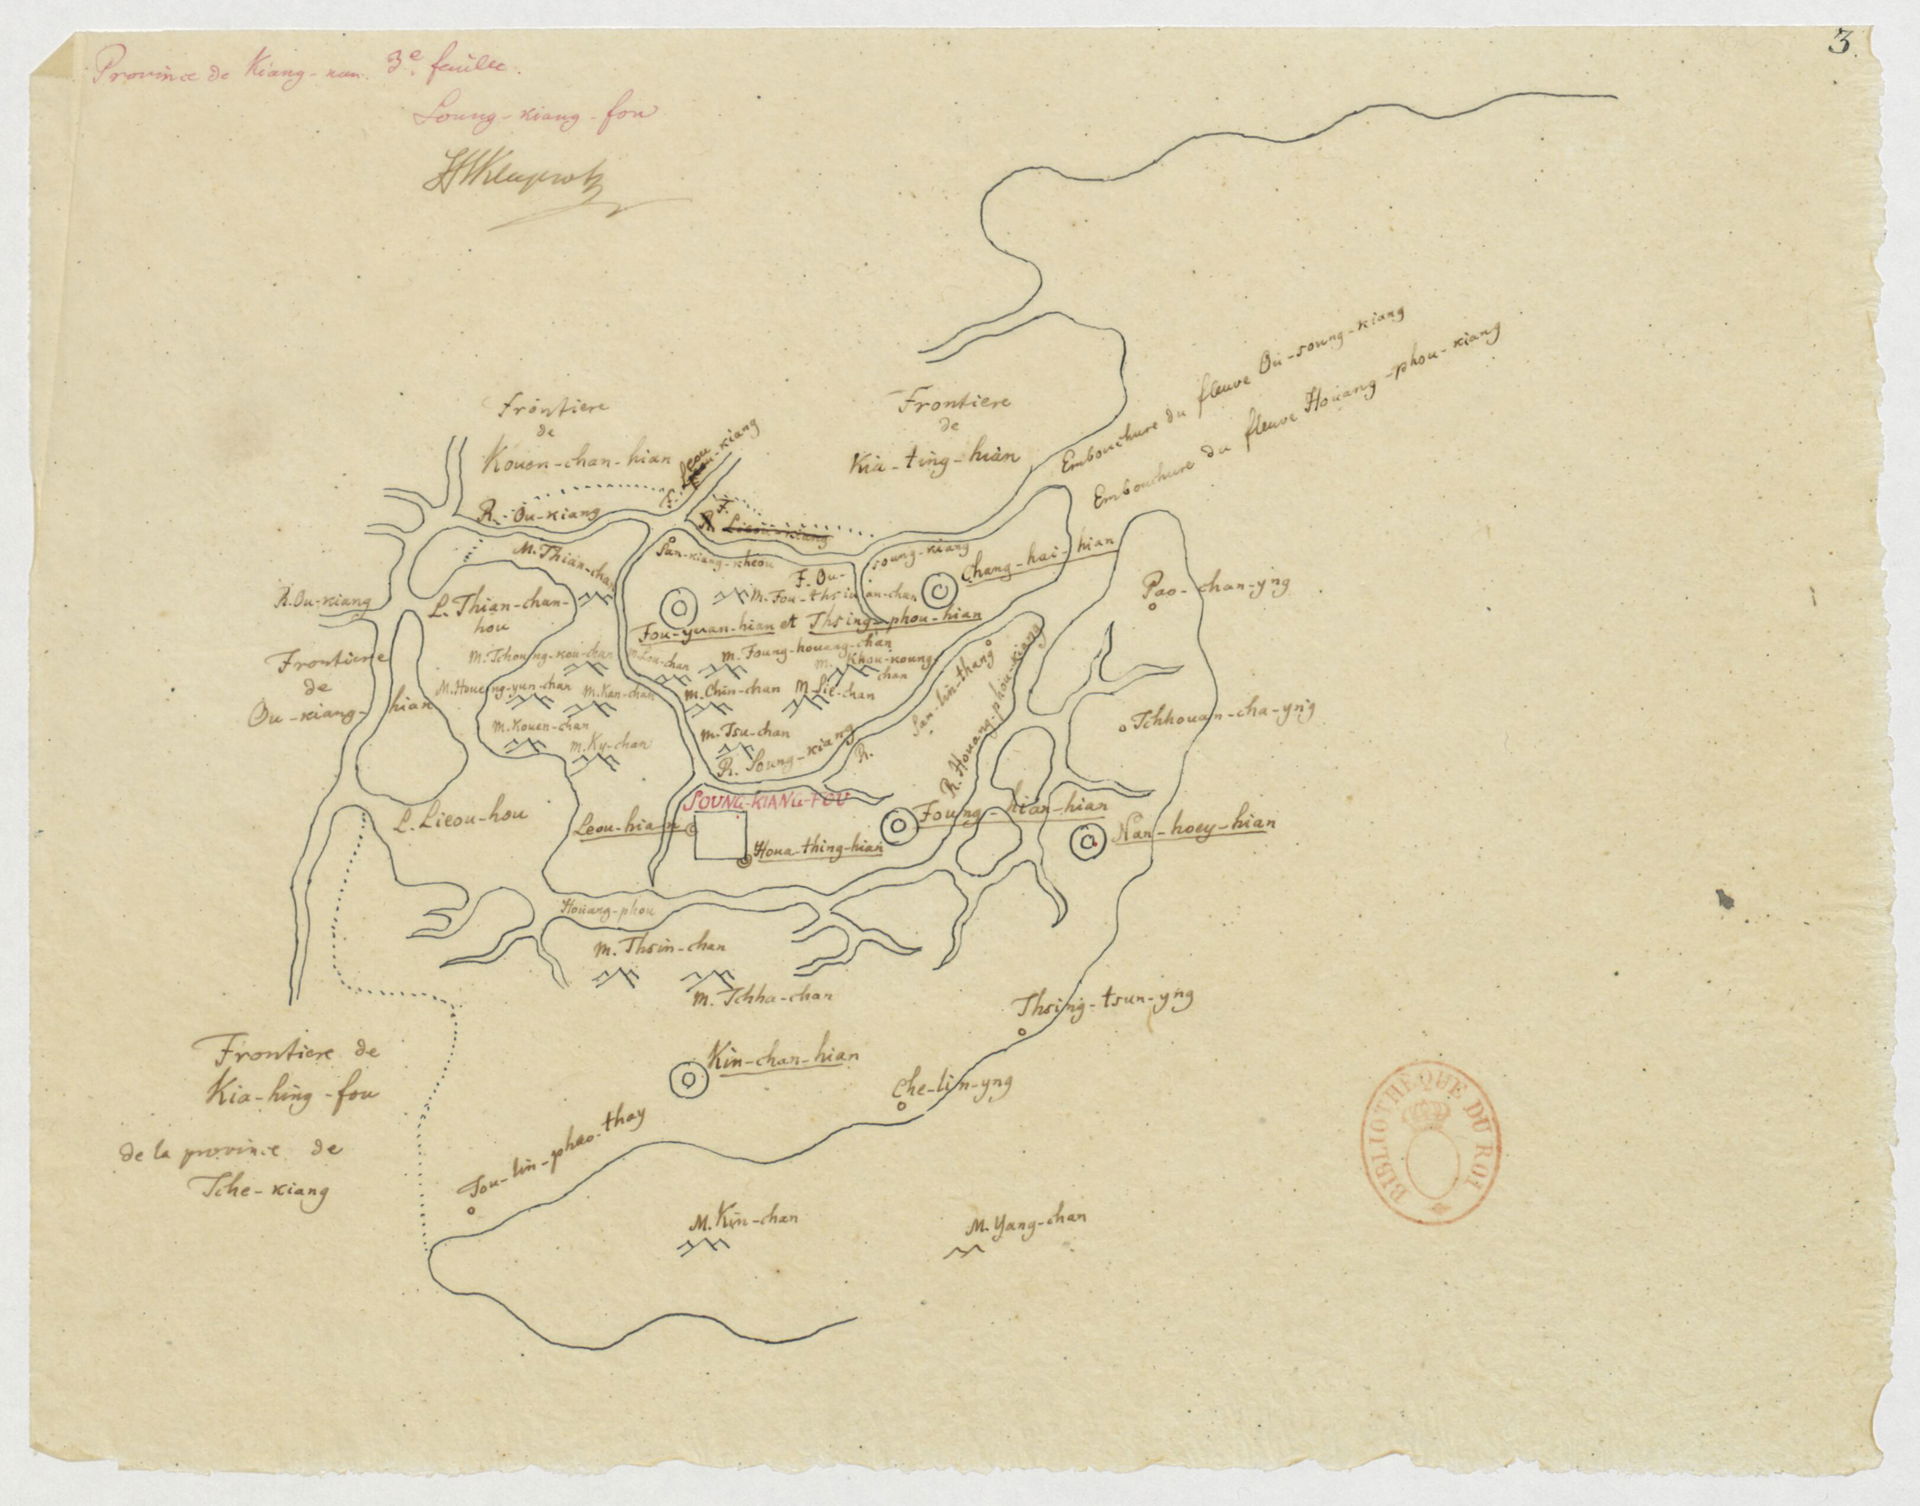 3.
Province de Kiang-nan. 3e. feuille.
Soung-kiang-fou
Klaproth
Embouchure du fleuve Ou-soung-kiang
Embouchure du fleuve Houang-phou-kiang
Frontiere
de
Kouen-chan-hian
Frontiere
de
Kia-ting-hian
F. Leou-kiang
R. Ou-kiang
Lieou-kiang
M. Thian-chan
San-kiang-kheou
F. Ou-
soung-kiang
Chang-hai-hian
M. Fou-thsiuan-chan
Pao-chan-yng
R. Ou-kiang
L. Thian-chan-
hou
Fou-yuan-hian et Thsing-phou-hian
M. Foung-houang-chan
M. Tchoung-kou-chan
M. Lou-chan
M. Khou-koung-
chan
Frontiere
de
Ou-kiang-hian
M. Houeng-yun-chan
M. Kan-chan
M. Chin-chan
M. Lie-chan
San-lin-thang
R. Houang-phou-kiang
Tchhouan-cha-yng
M. Kouen-chan
M. Tsu-chan
M. Ky-chan
R. Soung-kiang
R.
SOUNG-KIANG-FOU
L. Lieou-hou
Leou-hian
Foung-hian-hian
Nan-hoey-hian
Houa-thing-hian
Houang-phou
M. Thsin-chan
M. Tchha-chan
Thsing-tsun-yng
Frontiere de
Kia-hing-fou
de la province de
Tche-kiang
Kin-chan-hian
Che-lin-yng
Tou-lin-phao-thay
M. Kin-chan
M. Yang-chan
BIBLIOTHÈQUE DU ROI